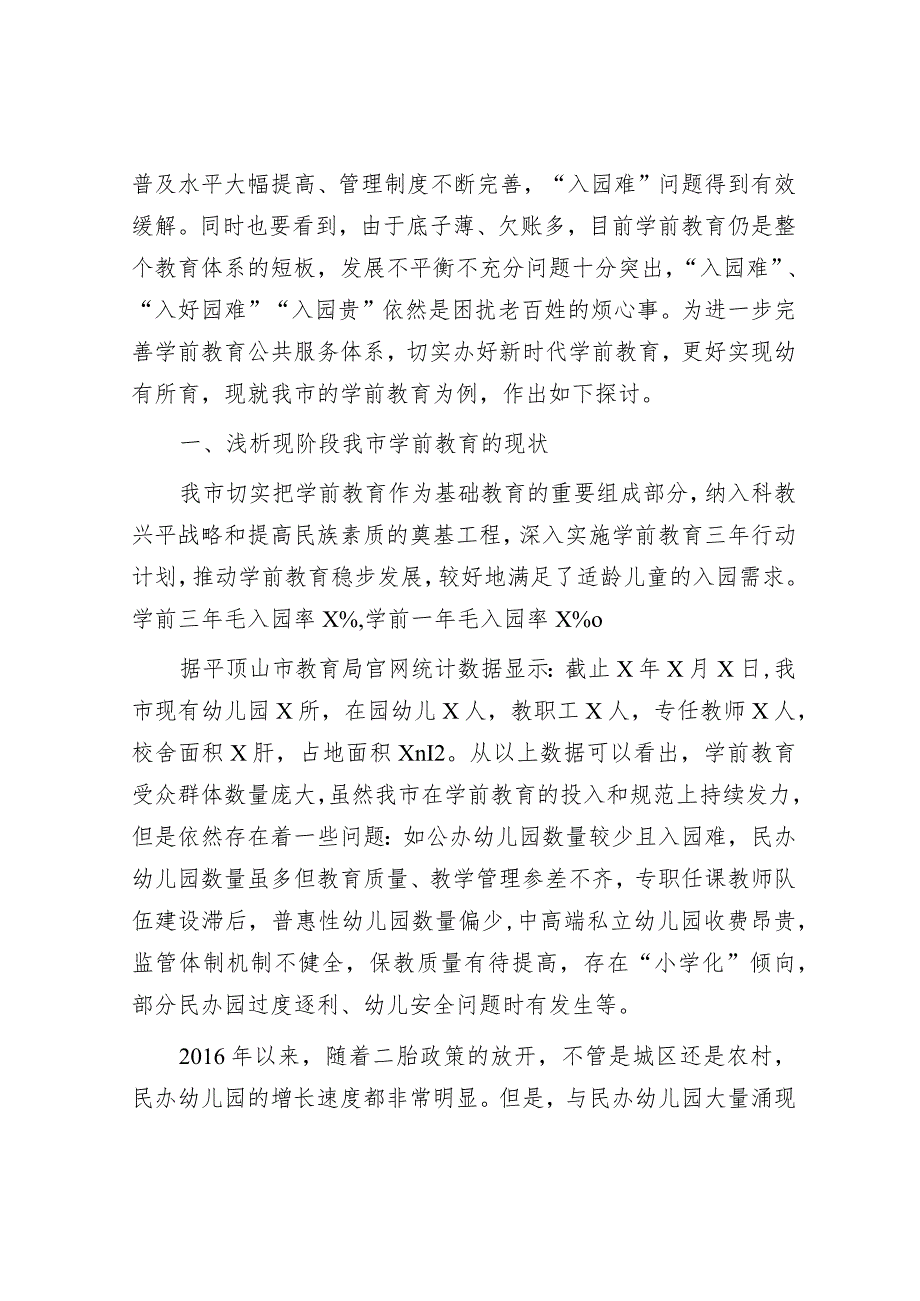 普及水平大幅提高、管理制度不断完善，“入园难”问题得到有效
缓解。同时也要看到，由于底子薄、欠账多，目前学前教育仍是整
个教育体系的短板，发展不平衡不充分问题十分突出，“入园难”、
“入好园难”“入园贵”依然是困扰老百姓的烦心事。为进一步完
善学前教育公共服务体系，切实办好新时代学前教育，更好实现幼
有所育，现就我市的学前教育为例，作出如下探讨。
一、浅析现阶段我市学前教育的现状
我市切实把学前教育作为基础教育的重要组成部分，纳入科教
兴平战略和提高民族素质的奠基工程，深入实施学前教育三年行动
计划，推动学前教育稳步发展，较好地满足了适龄儿童的入园需求。
学前三年毛入园率 X%,学前一年毛入园率 X%o
据平顶山市教育局官网统计数据显示：截止 X 年 X 月 X 日,我
市现有幼儿园 X 所，在园幼儿 X 人，教职工 X 人，专任教师 X 人，
校舍面积 X 肝，占地面积 XnI2。从以上数据可以看出，学前教育
受众群体数量庞大，虽然我市在学前教育的投入和规范上持续发力，
但是依然存在着一些问题：如公办幼儿园数量较少且入园难，民办
幼儿园数量虽多但教育质量、教学管理参差不齐，专职任课教师队
伍建设滞后，普惠性幼儿园数量偏少,中高端私立幼儿园收费昂贵，
监管体制机制不健全，保教质量有待提高，存在“小学化”倾向，
部分民办园过度逐利、幼儿安全问题时有发生等。
2016 年以来，随着二胎政策的放开，不管是城区还是农村，
民办幼儿园的增长速度都非常明显。但是，与民办幼儿园大量涌现